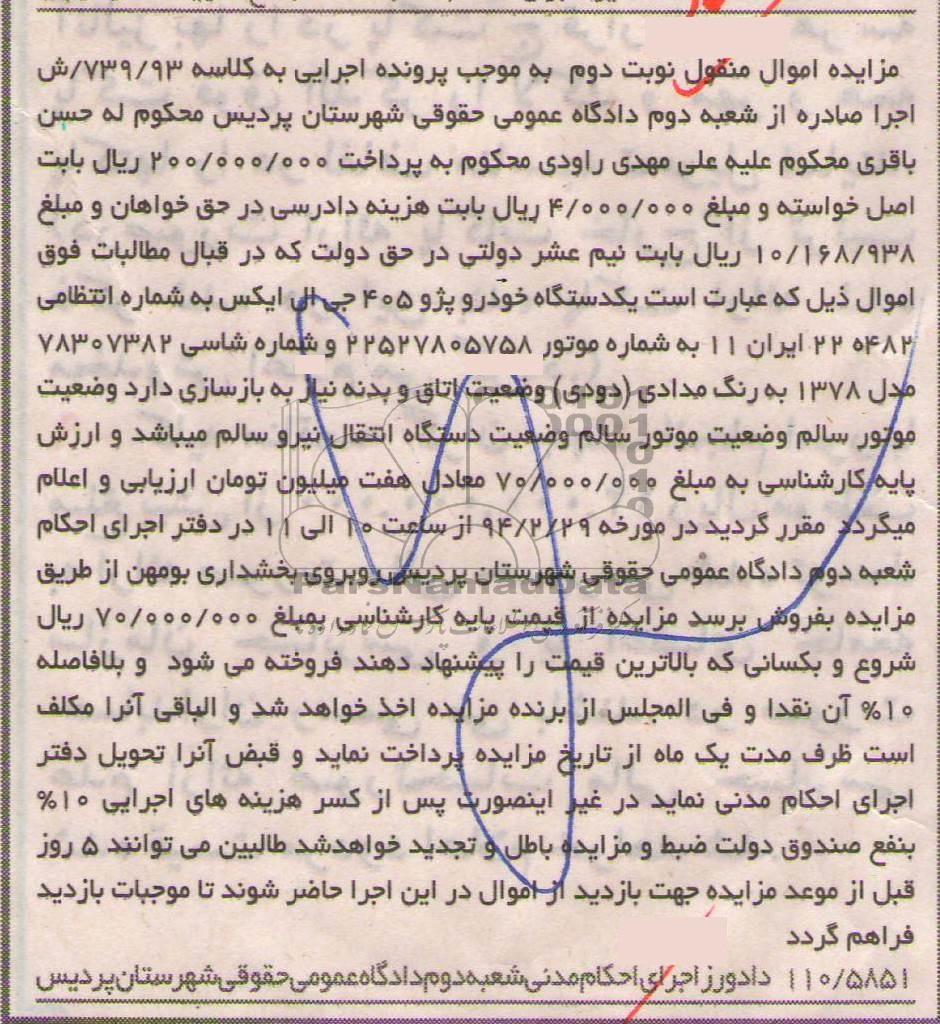 مزایده اموال منقول نوبت دوم به موجب پرونده اجرایی به کلاسه ۷۳۹/۹۳/ش
اجرا صادره از شعبه دوم دادگاه عمومی حقوقی شهرستان پردیس محکوم له حسن
باقری محکوم علیه علی مهدی راودی محکوم به پرداخت ۲۰۰/۰۰۰/۰۰۰ ریال بابت
اصل خواسته و مبلغ ۴/۰۰۰/۰۰۰ ریال بابت هزینه دادرسی در حق خواهان و مبلغ
۱۰/۱۶۸/۹۳۸ ریال بابت نیم عشر دولتی در حق دولت که در قبال مطالبات فوق
اموال ذیل که عبارت است یکدستگاه خودرو پژو ۴۰۵ جی ال ایکس به شماره انتظامی
۴۸۲ه ۲۲ ایران ۱۱ به شماره موتور ۲۲۵۲۷۸۰۵۷۵۸ و شماره شاسی ۷۸۳۰۷۳۸۲
مدل ۱۳۷۸ به رنگ مدادی (دودی) وضعیت اتاق و بدنه نیاز به بازسازی دارد وضعیت
موتور سالم وضعیت موتور سالم وضعیت دستگاه انتقال نیرو سالم میباشد و ارزش
پایه کارشناسی به مبلغ ۷۰/۰۰۰/۰۰۰ معادل هفت میلیون تومان ارزیابی و اعلام
میگردد مقرر گردید در مورخه ۹۴/۲/۲۹ از ساعت ۱۰ الی ۱۱ در دفتر اجرای احکام
شعبه دوم دادگاه عمومی حقوقی شهرستان پردیس روبروی بخشداری بومهن از طریق
ParsNamadData
مزایده بفروش برسد مزایده از قیمت پایه کارشناسی بمبلغ ۷۰/۰۰۰/۰۰۰ ریال
شروع و بکسانی که بالاترین قیمت را پیشنهاد دهند فروخته می شود و بلافاصله
۱۰% آن نقدا و فی المجلس از برنده مزایده اخذ خواهد شد و الباقی آنرا مکلف
است ظرف مدت یک ماه از تاریخ مزایده پرداخت نماید و قبض آنرا تحویل دفتر
اجرای احکام مدنی نماید در غیر اینصورت پس از کسر هزینه های اجرایی ۱۰%
بنفع صندوق دولت ضبط و مزایده باطل و تجدید خواهدشد طالبین می توانند ۵ روز
قبل از موعد مزایده جهت بازدید از اموال در این اجرا حاضر شوند تا موجبات بازدید
فراهم گردد
۱۱۰/۵۸۵۱ دادورز اجرای احکام مدنی شعبه دوم دادگاه عمومی حقوقی شهرستان پردیس